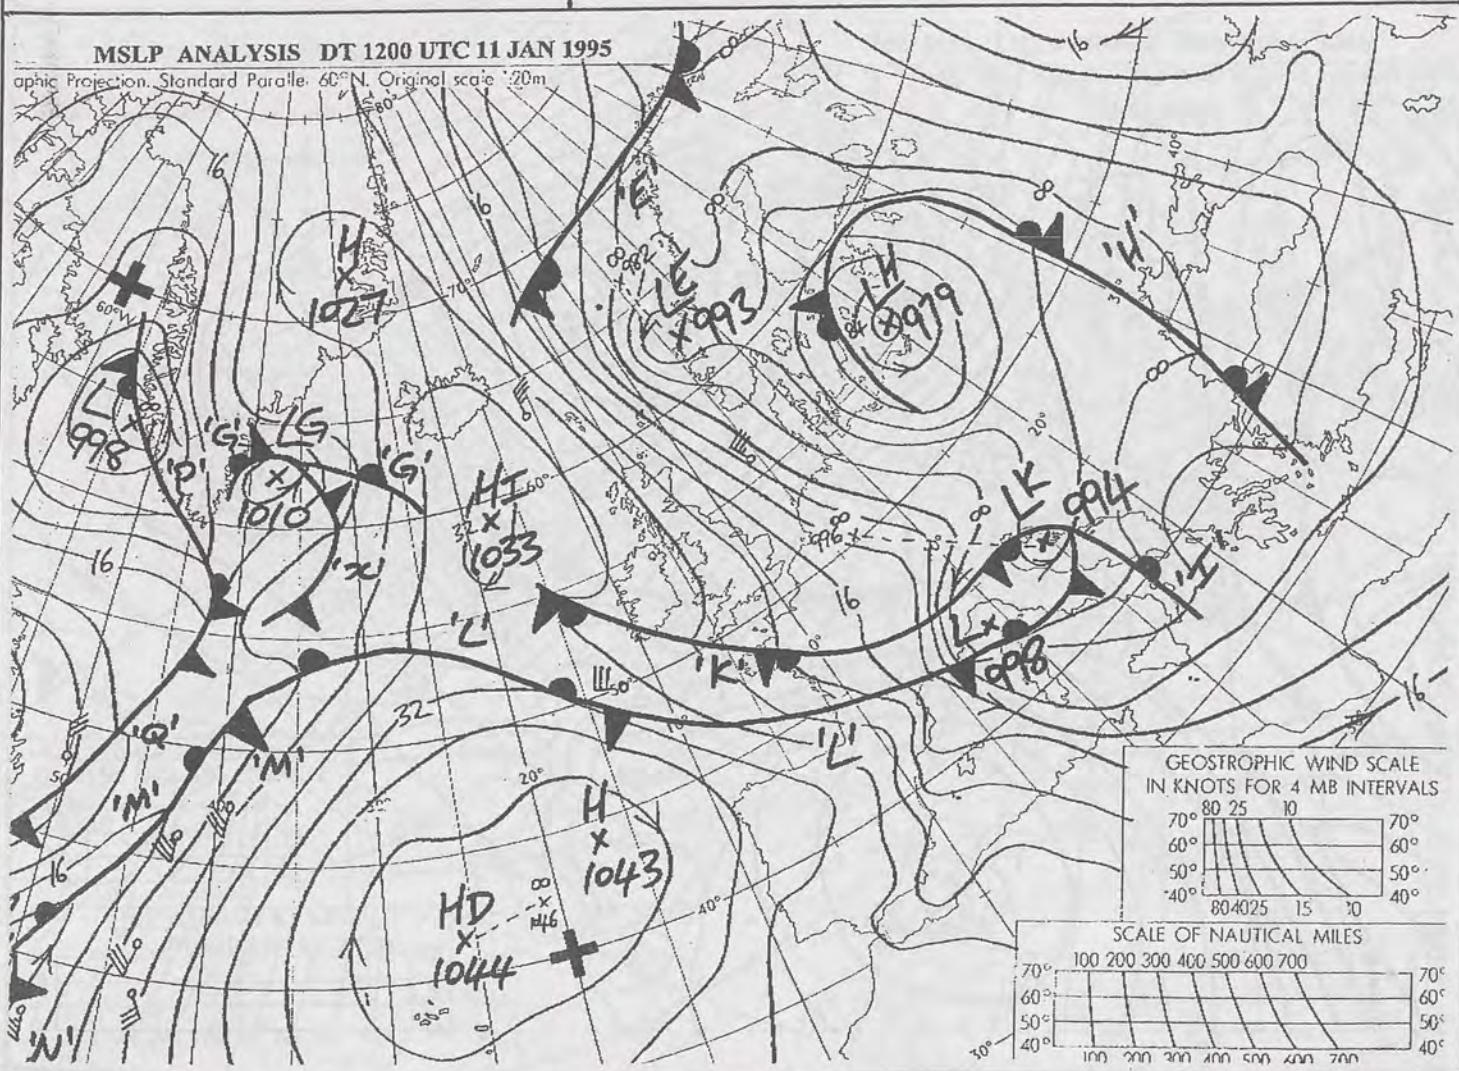 MSLP ANALYSIS DT 1200 UTC 11 JAN 1995
aphic Projection. Standard Parallel 60°N. Original scale 20m
80°
16
16
40°
16
'E'
8
8
'H'
H
1027
70°
LE
993
LH
979
60°
L
998
'P'
'G'
LG
1010
'G'
'X'
HI
1033
32
60°
20°
8
LK
994
996
8
8
8
16
16
'L'
'K'
0°
L
998
'I'
50°
10°
'L'
32
16
'Q'
'M'
'M'
50
20°
H
1043
HD
1044
8
1046
40°
16
'N'
30°
GEOSTROPHIC WIND SCALE
IN KNOTS FOR 4 MB INTERVALS
80 25 10
70° 70°
60° 60°
50° 50°
40° 40°
80 40 25 15 10
SCALE OF NAUTICAL MILES
100 200 300 400 500 600 700
70° 70°
60° 60°
50° 50°
40° 40°
100 200 300 400 500 600 700